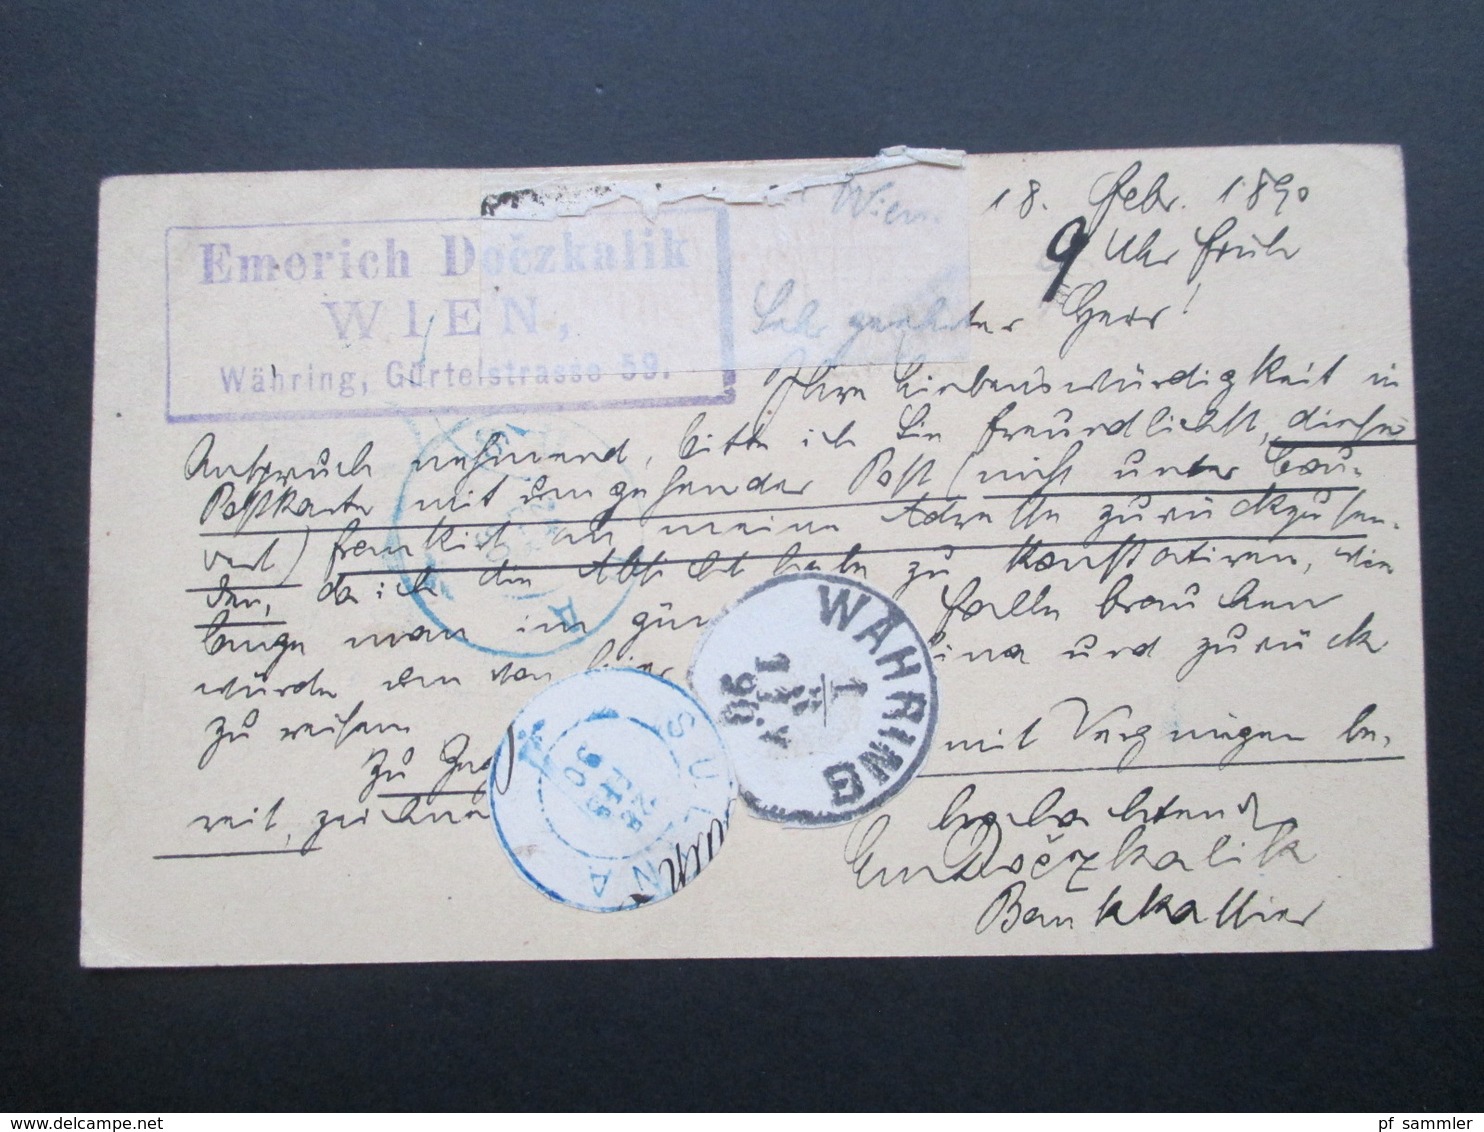 Emerich Dočzkalik
WIEN,
Währing, Gürtelstrasse 59.
Wien 18. Febr. 1890
9 Uhr früh
Sehr geehrter Herr!
Ihre Liebenswürdigkeit in
Anspruch nehmend, bitte ich Sie freundlichst, diese
Postkarte mit umgehender Post (nicht unter Cou-
vert) frankirt an meine Adresse zurückzusen-
den, da ich die Absicht habe zu konstatiren, wie
lange man im gün falle brauchen
würde um von hier ina und zurück
zu reisen
mit Vergnügen be-
reit, zeichne
hochachtend
Em Dočzkalik
Bankkassier
WÄHRING
1
SULINA
28 FEB 90
SULINA